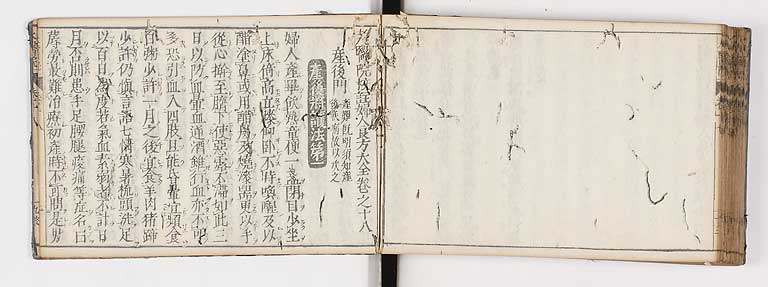 太醫院校註婦人良方大全卷之十八
產後門
產難既明須知產
後疾病故以次之
產後將護法第一
婦人產畢飲熱童便一盞閉目少坐
上床倚高立膝仰臥不時喚醒及以
醋塗鼻或用醋炭及燒漆器更以手
從心擀至臍下使惡露不滯如此三
日以防血暈血逆酒雖行血亦不可
多恐引血入四肢且能昏暈宜頻食
白粥少許一月之後宜食羊肉猪蹄
少許仍慎言語七情寒暑梳頭洗足
以百日為度若氣血素弱者不計日
月否則患手足腰腿痠痛等症名曰
蓐勞最難治療初產時不可問是男